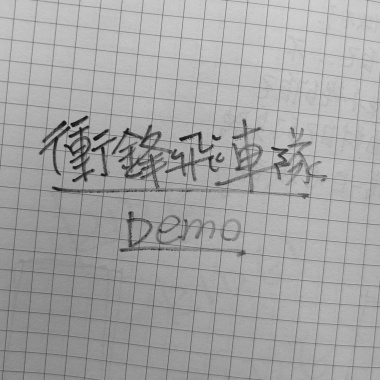 衝鋒飛車隊
Demo